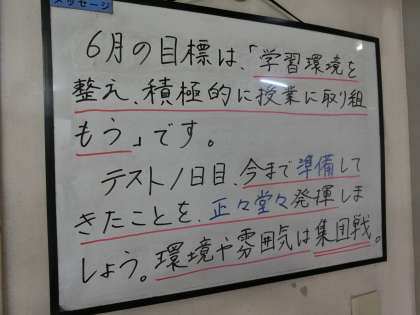 メッセージ
6月の目標は、「学習環境を
整え、積極的に授業に取り組
もう」です。
テスト1日目、今まで準備して
きたことを、正々堂々発揮しま
しょう。環境や雰囲気は集団戦。